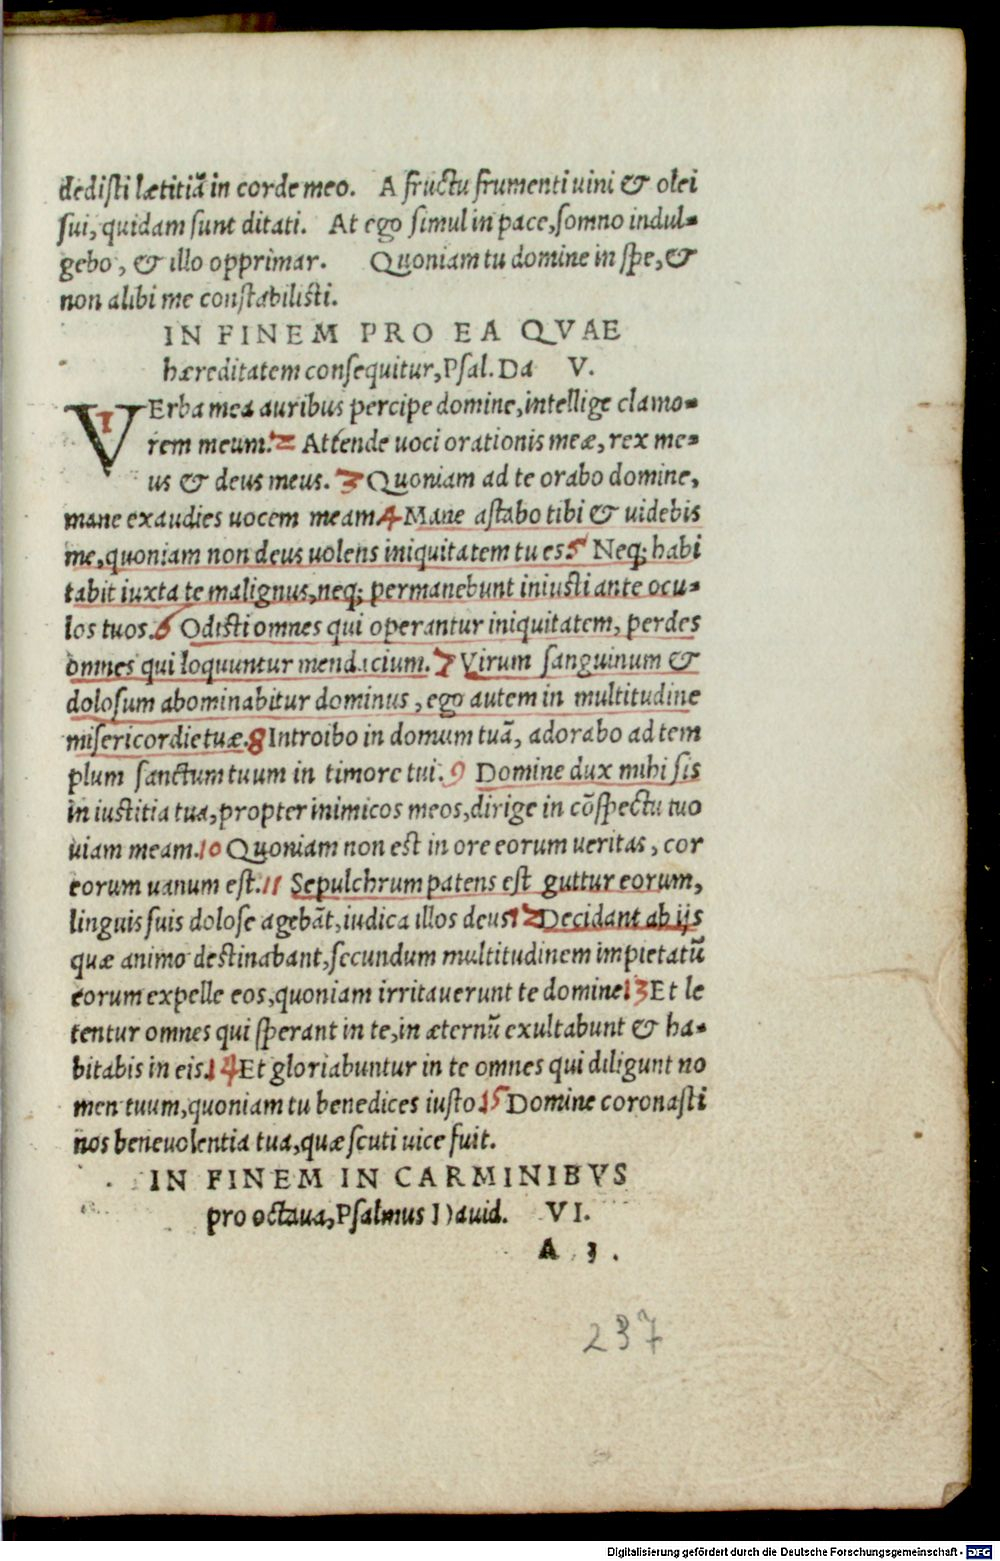 dedisti lætitiã in corde meo. A fructu frumenti uini & olei
sui, quidam sunt ditati. At ego simul in pace, somno indul-
gebo, & illo opprimar. Quoniam tu domine in spe, &
non alibi me constabilisti.
IN FINEM PRO EA QVAE
hæreditatem consequitur, Psal. Da V.
VErba mea auribus percipe domine, intellige clamo-
1
rem meum. 2 Attende uoci orationis meæ, rex me-
us & deus meus. 3 Quoniam ad te orabo domine,
mane exaudies uocem meam 4 Mane astabo tibi & uidebis
me, quoniam non deus uolens iniquitatem tu es 5 Neq; habi
tabit iuxta te malignus, neq; permanebunt iniusti ante ocu-
los tuos. 6 Odisti omnes qui operantur iniquitatem, perdes
omnes qui loquuntur mendacium. 7 Virum sanguinum &
dolosum abominabitur dominus, ego autem in multitudine
misericordie tuæ. 8 Introibo in domum tuã, adorabo ad tem
plum sanctum tuum in timore tui. 9 Domine dux mihi sis
in iustitia tua, propter inimicos meos, dirige in cõspectu tuo
uiam meam. 10 Quoniam non est in ore eorum ueritas, cor
eorum uanum est. 11 Sepulchrum patens est guttur eorum,
linguis suis dolose agebãt, iudica illos deus 12 Decidant ab ijs
quæ animo destinabant, secundum multitudinem impietatũ
eorum expelle eos, quoniam irritauerunt te domine 13 Et le
tentur omnes qui sperant in te, in æternũ exultabunt & ha-
bitabis in eis. 14 Et gloriabuntur in te omnes qui diligunt no
men tuum, quoniam tu benedices iusto. 15 Domine coronasti
nos beneuolentia tua, quæ scuti uice fuit.
IN FINEM IN CARMINIBVS
pro octaua, Psalmus Dauid. VI.
A 3.
237
Digitalisierung gefördert durch die Deutsche Forschungsgemeinschaft - DFG